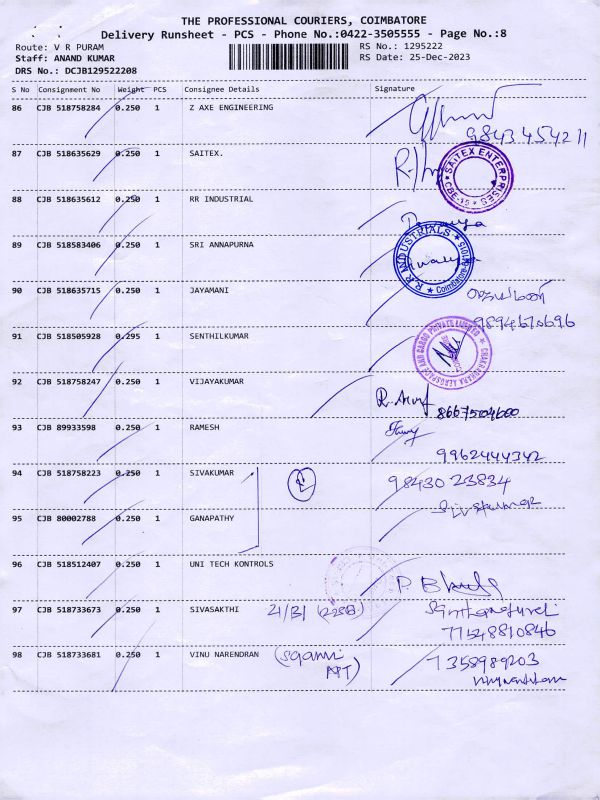 THE PROFESSIONAL COURIERS, COIMBATORE
Delivery Runsheet - PCS - Phone No.:0422-3505555 - Page No.:8
Route: V R PURAM
RS No.: 1295222
Staff: ANAND KUMAR
RS Date: 25-Dec-2023
DRS No.: DCJB129522208
S No Consignment No Weight PCS Consignee Details Signature
86 CJB 518758284 0.250 1 Z AXE ENGINEERING
9843454211
87 CJB 518635629 0.250 1 SAITEX.
SAITEX ENTERPRISES
CBE-15
88 CJB 518635612 0.250 1 RR INDUSTRIAL
89 CJB 518583406 0.250 1 SRI ANNAPURNA
R.R. INDUSTRIALS
Coimbatore-641015
90 CJB 518635715 0.250 1 JAYAMANI
9894670696
91 CJB 518505928 0.295 1 SENTHILKUMAR
AEROSPACE AND CARGO PRIVATE LIMITED
92 CJB 518758247 0.250 1 VIJAYAKUMAR
8667504600
93 CJB 89933598 0.250 1 RAMESH
9962444342
94 CJB 518758223 0.250 1 SIVAKUMAR
98430 23834
Sivakumar
95 CJB 80002788 0.250 1 GANAPATHY
96 CJB 518512407 0.250 1 UNI TECH KONTROLS
97 CJB 518733673 0.250 1 SIVASAKTHI 21/B1 (228B)
77548810846
98 CJB 518733681 0.250 1 VINU NARENDRAN
7358989203
APT)